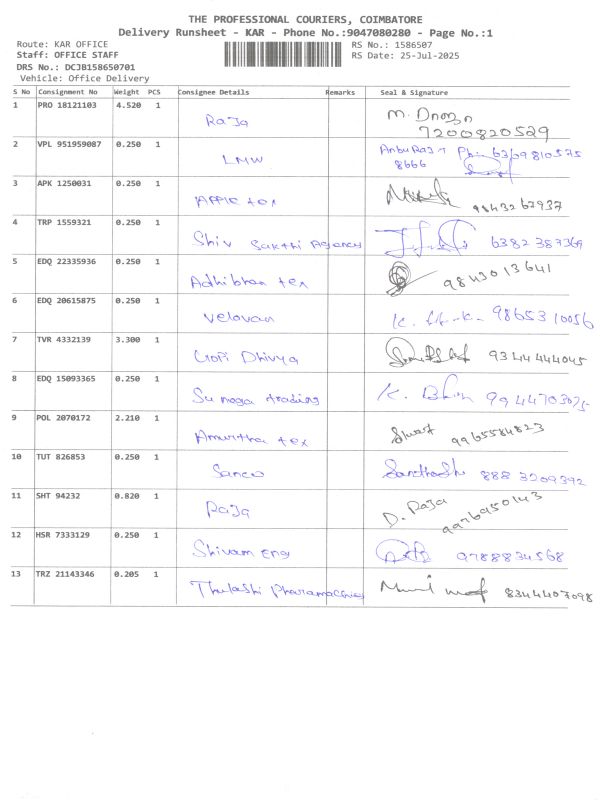 THE PROFESSIONAL COURIERS, COIMBATORE
Delivery Runsheet - KAR - Phone No.:9047080280 - Page No.:1
Route: KAR OFFICE RS No.: 1586507
Staff: OFFICE STAFF RS Date: 25-Jul-2025
DRS No.: DCJB158650701
Vehicle: Office Delivery
S No Consignment No Weight PCS Consignee Details Remarks Seal & Signature
1 PRO 18121103 4.520 1 Raja M.
7200820529
2 VPL 951959087 0.250 1 LMW AnbuRaj Ph: 6369810575
8666
3 APK 1250031 0.250 1 tex 9843267937
4 TRP 1559321 0.250 1 Shiv Sakthi Agency 6382387369
5 EDQ 22335936 0.250 1 Adhibhan tex 9843013641
6 EDQ 20615875 0.250 1 Velavan K. 9865310056
7 TVR 4332139 3.300 1 Gopi Dhivya 9344444045
8 EDQ 15093365 0.250 1 Su naga trading K. 9944703075
9 POL 2070172 2.210 1 Amurtha tex 9965584823
10 TUT 826853 0.250 1 Sanco Santhosh 888 3209392
11 SHT 94232 0.820 1 Raja D. Raja
9976950143
12 HSR 7333129 0.250 1 Shivam eng 9788834568
13 TRZ 21143346 0.205 1 Thulashi Pharamachies 8344407098